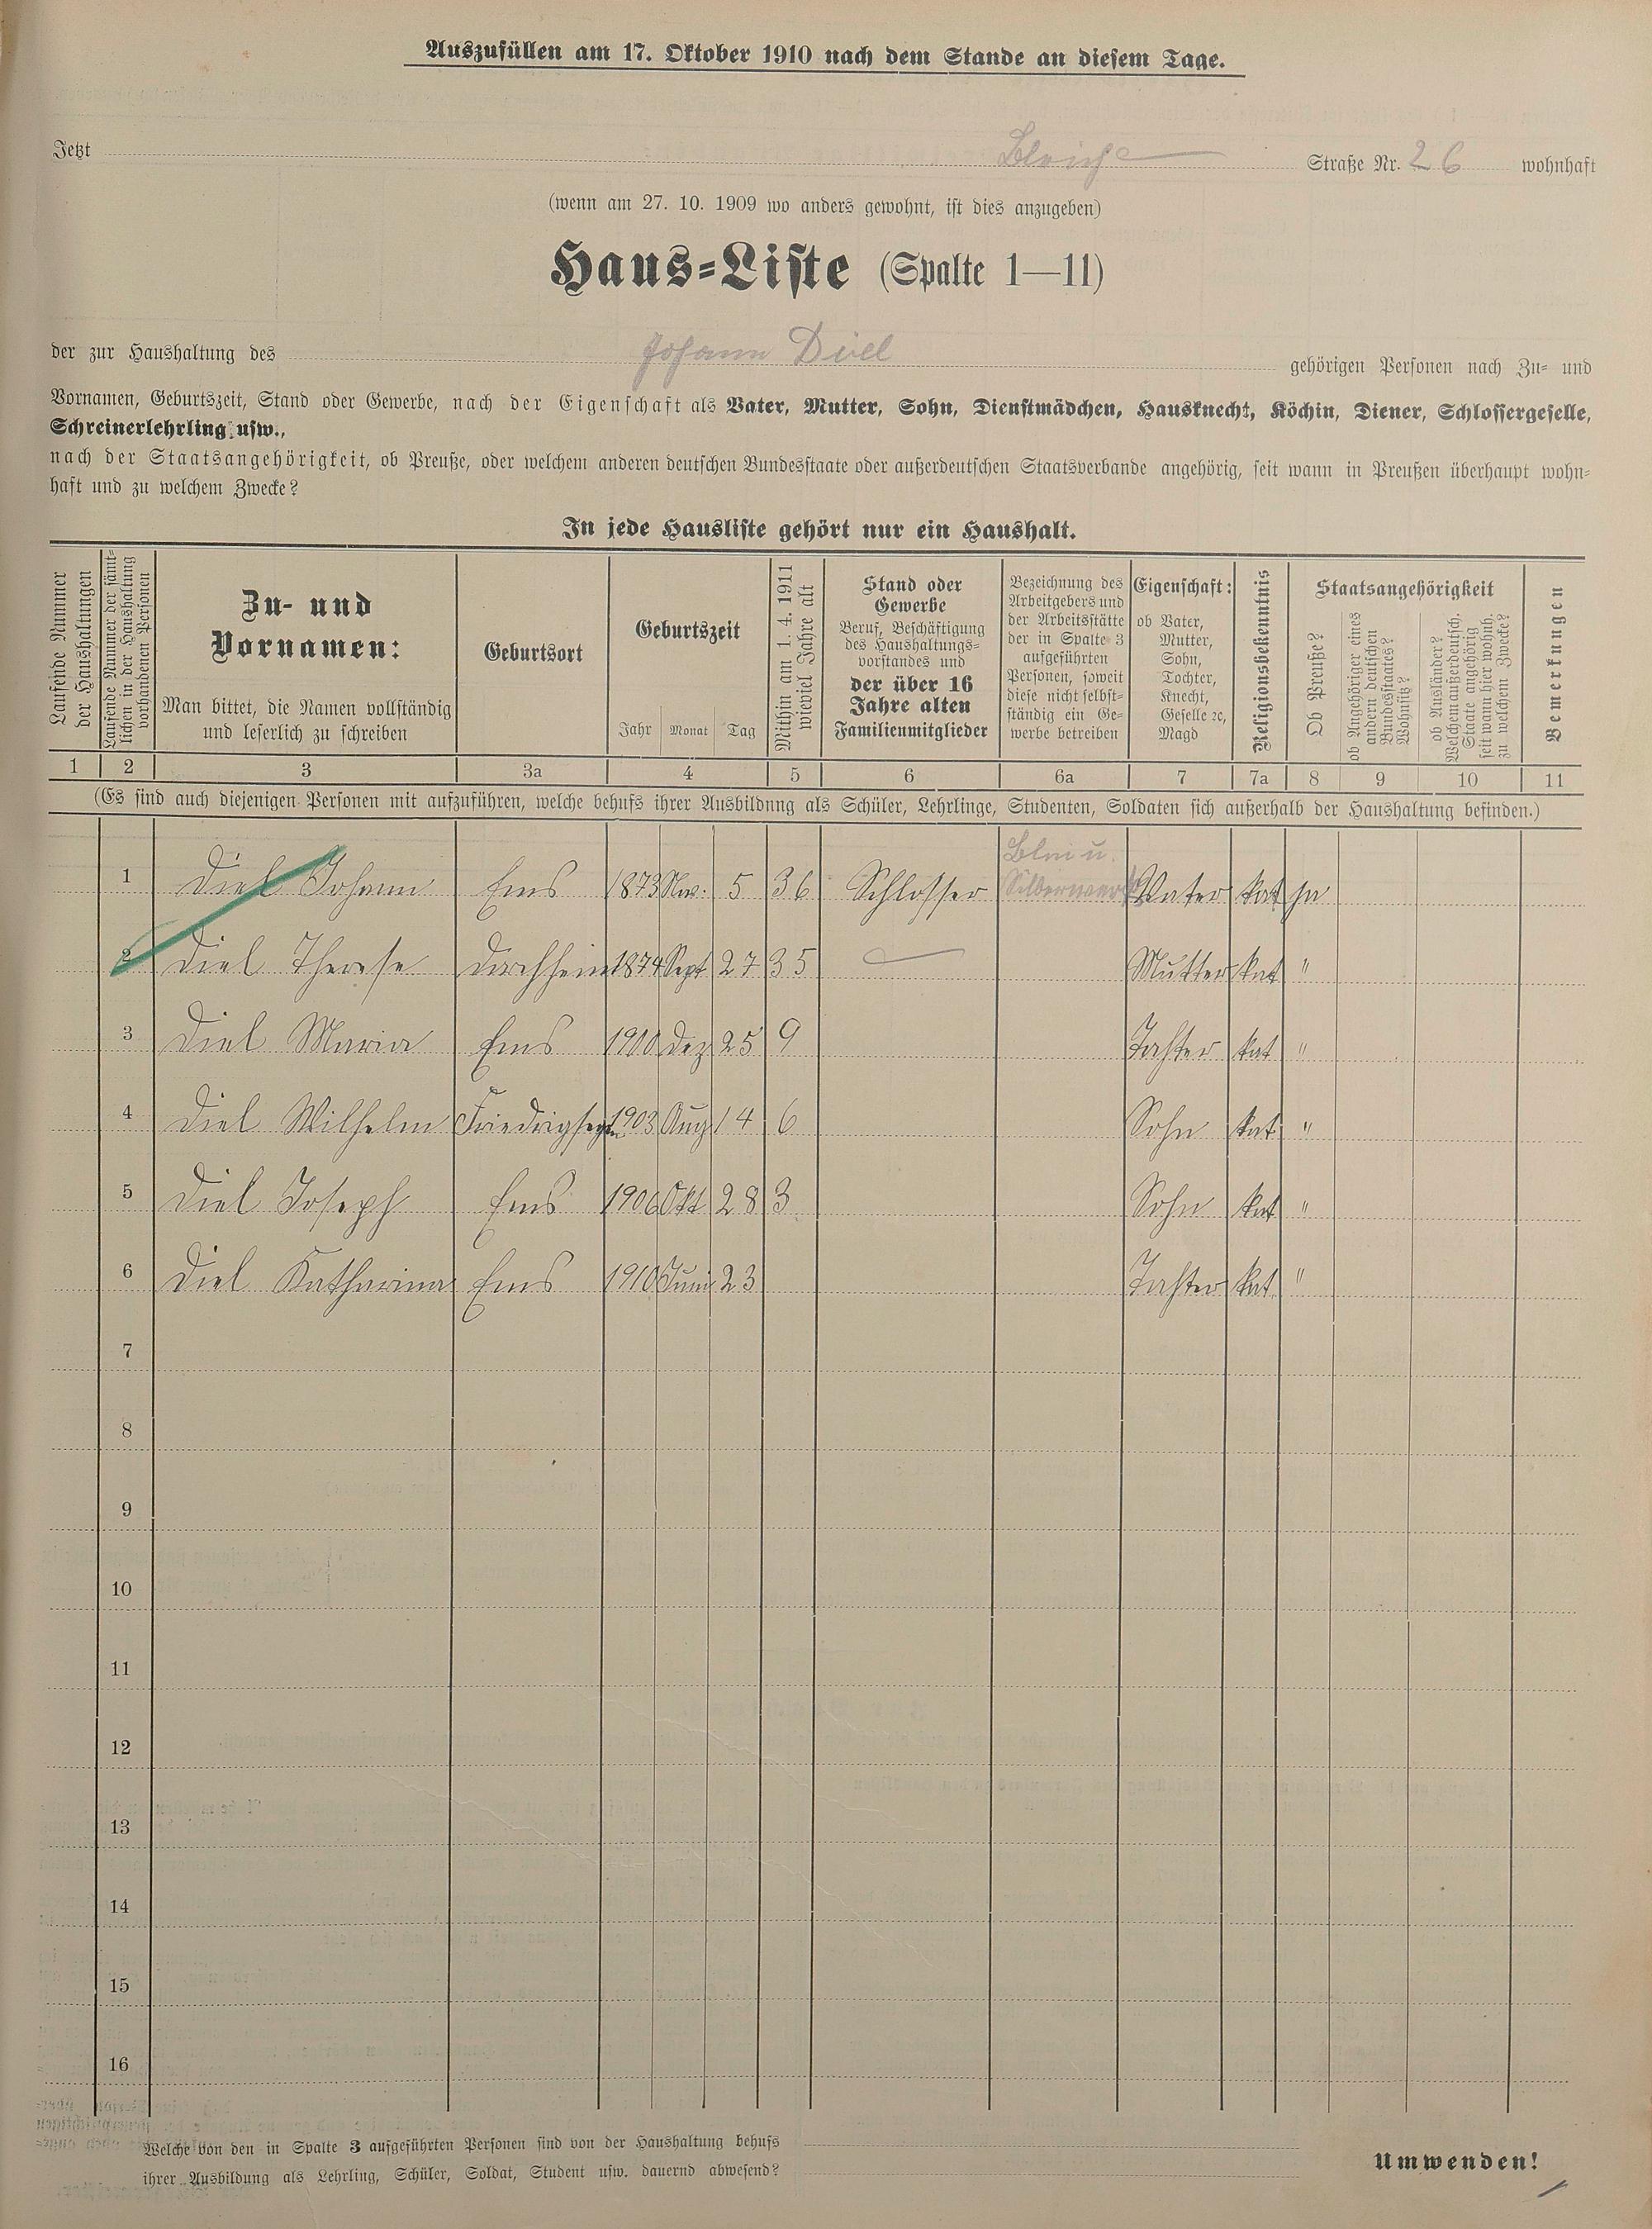 Auszufüllen am 17. Oktober 1910 nach dem Stande an diesem Tage.
Jetzt Bleich Straße Nr. 26 wohnhaft
(wenn am 27. 10. 1909 wo anders gewohnt, ist dies anzugeben)
Haus-Liste (Spalte 1—11)
der zur Haushaltung des Johann Diel gehörigen Personen nach Zu- und
Vornamen, Geburtszeit, Stand oder Gewerbe, nach der Eigenschaft als Vater, Mutter, Sohn, Dienstmädchen, Hausknecht, Köchin, Diener, Schlossergeselle,
Schreinerlehrling usw.,
nach der Staatsangehörigkeit, ob Preuße, oder welchem anderen deutschen Bundesstaate oder außerdeutschen Staatsverbande angehörig, seit wann in Preußen überhaupt wohn-
haft und zu welchem Zwecke?
In jede Hausliste gehört nur ein Haushalt.
Laufende Nummer
der Haushaltungen
Laufende Nummer der sämt-
lichen in der Haushaltung
vorhandenen Personen
Zu- und
Vornamen:
Man bittet, die Namen vollständig
und leserlich zu schreiben
Geburtsort
Geburtszeit
Jahr Monat Tag
Mithin am 1. 4. 1911
wieviel Jahre alt
Stand oder
Gewerbe
Beruf, Beschäftigung
des Haushaltungs-
vorstandes und
der über 16
Jahre alten
Familienmitglieder
Bezeichnung des
Arbeitgebers und
der Arbeitsstätte
der in Spalte 3
aufgeführten
Personen, soweit
diese nicht selbst-
ständig ein Ge-
werbe betreiben
Eigenschaft:
ob Vater,
Mutter,
Sohn,
Tochter,
Knecht,
Geselle ꝛc,
Magd
Religionsbekenntnis
Staatsangehörigkeit
Ob Preuße?
ob Angehöriger eines
andern deutschen
Bundesstaates?
Wohnsitz?
ob Ausländer?
Welchem außerdeutsch.
Staate angehörig
seit wann hier wohnh.
zu welchem Zwecke?
Bemerkungen
1 2 3 3a 4 5 6 6a 7 7a 8 9 10 11
(Es sind auch diejenigen Personen mit aufzuführen, welche behufs ihrer Ausbildung als Schüler, Lehrlinge, Studenten, Soldaten sich außerhalb der Haushaltung befinden.)
Blei u.
1 Diel Johann Ems 1873 Nov. 5 36 Schlosser Silberwerk Vater kat ja
2 Diel Therese 1874 Sept 27 35 Mutter kat "
3 Diel Maria Ems 1900 Dez 25 9 Tochter kat "
4 Diel Wilhelm 1903 Aug 14 6 Sohn kat "
5 Diel Joseph Ems 1906 Okt 28 3 Sohn kat "
6 Diel Katharina Ems 1910 Juni 23 Tochter kat. "
7
8
9
10
11
12
13
14
15
16
Welche von den in Spalte 3 aufgeführten Personen sind von der Haushaltung behufs
ihrer Ausbildung als Lehrling, Schüler, Soldat, Student usw. dauernd abwesend?
Umwenden!